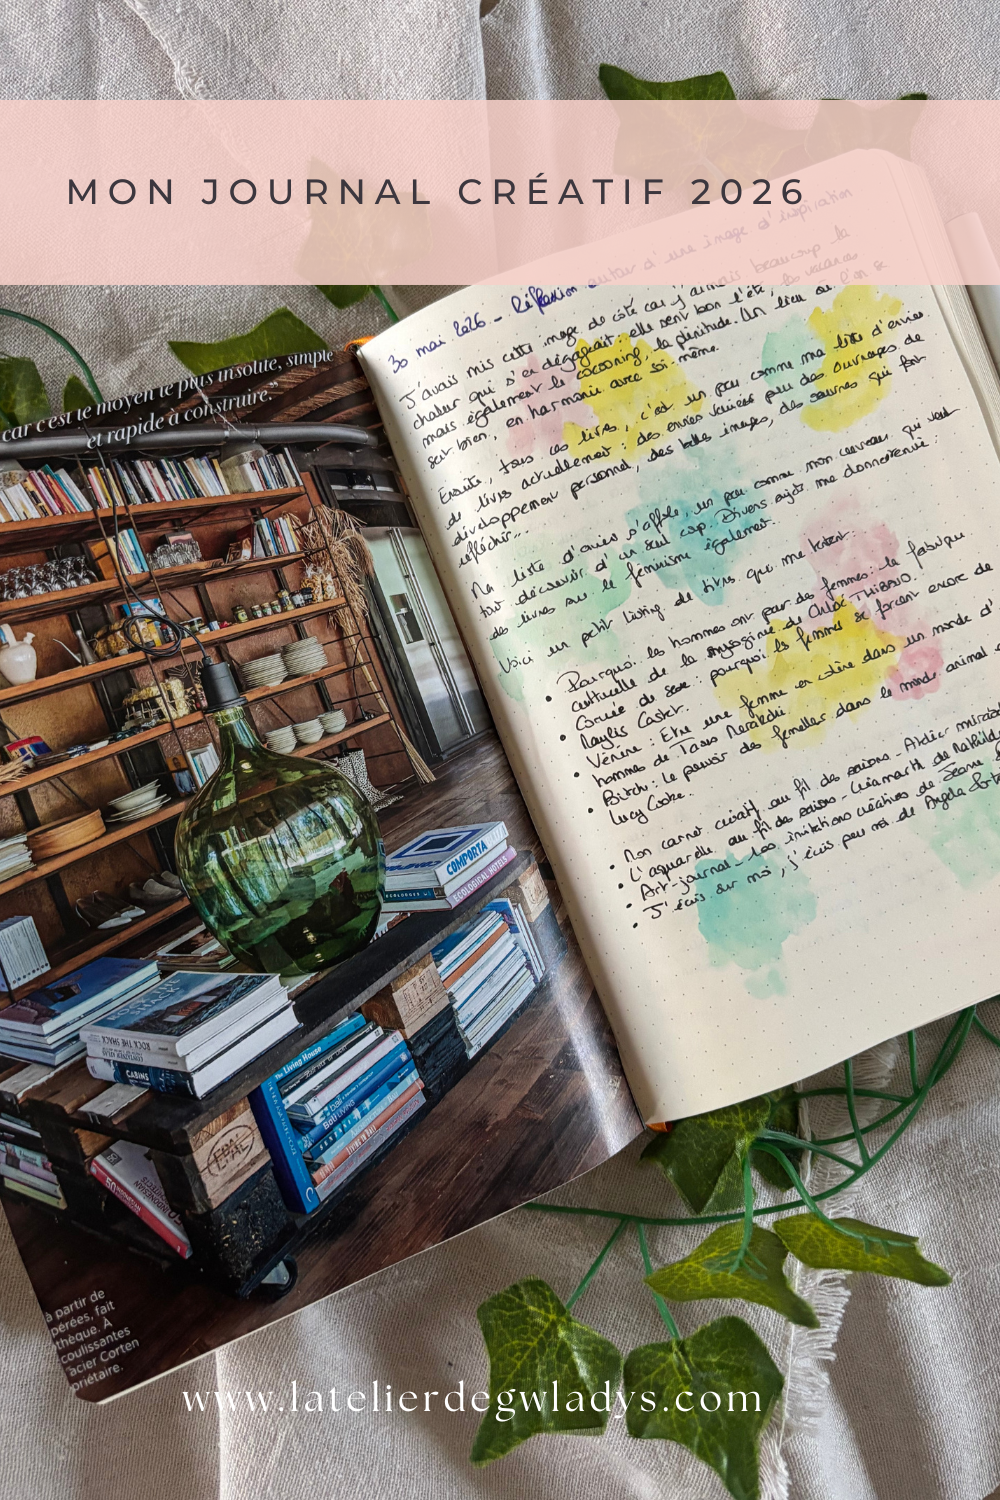 MON JOURNAL CRÉATIF 2026
30 mai 2026 - Réflexion autour d'une image d'inspiration
J'avais mis cette image de côté car j'aimais beaucoup la
chaleur qui s'en dégageait : elle sent bon l'été, les vacances
mais également le cocooning, la plénitude. Un lieu où l'on se
sent bien, en harmonie avec soi-même.
Ensuite, tous ces livres, c'est un peu comme ma liste d'envies
de livres actuellement : des envies variées pour des ouvrages de
développement personnel, des belles images, des oeuvres qui font
réfléchir...
Ma liste d'envies s'affole, un peu comme mon cerveau qui veut
tout découvrir d'un seul coup. Divers sujets me
des livres sur le féminisme également.
Voici un petit listing de livres qui me tentent :
• Pourquoi les hommes ont peur des femmes : la fabrique
culturelle de la misogynie de Chloé THIBAUD.
• Corvée de sexe : pourquoi les femmes se forcent encore de
Maylis Castet.
• Vénère : Etre une femme en colère dans un monde d'
hommes de Taous Merakchi
• Bitch : le pouvoir des femelles dans le monde animal
Lucy Cooke.
• Mon carnet créatif au fil des saisons - Atelier
• L'aquarelle au fil des saisons - de Mathilde
• Art-journal - 100 invitations créatives de Jeanne
• J'écris sur moi, j'écris pour moi de Angela
car c'est le moyen le plus insolite, simple
et rapide à construire."
COMPORTA
ECOLOGICAL HOTELS
ROCK THE SHACK
CABINS
The Living House
Bali
LIVING
50
à partir de
pérées, fait
thèque. À
coulissantes
acier Corten
priétaire.
www.latelierdegwladys.com